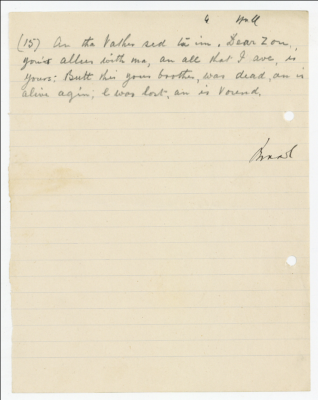 4 Hall
(15) An the Vather sed tä im. Dear Zon,
you's allus with ma, an all that I ave, is
yours: Butt this your brother, was dead, an is
alive agin; & was lost, an is Vound.